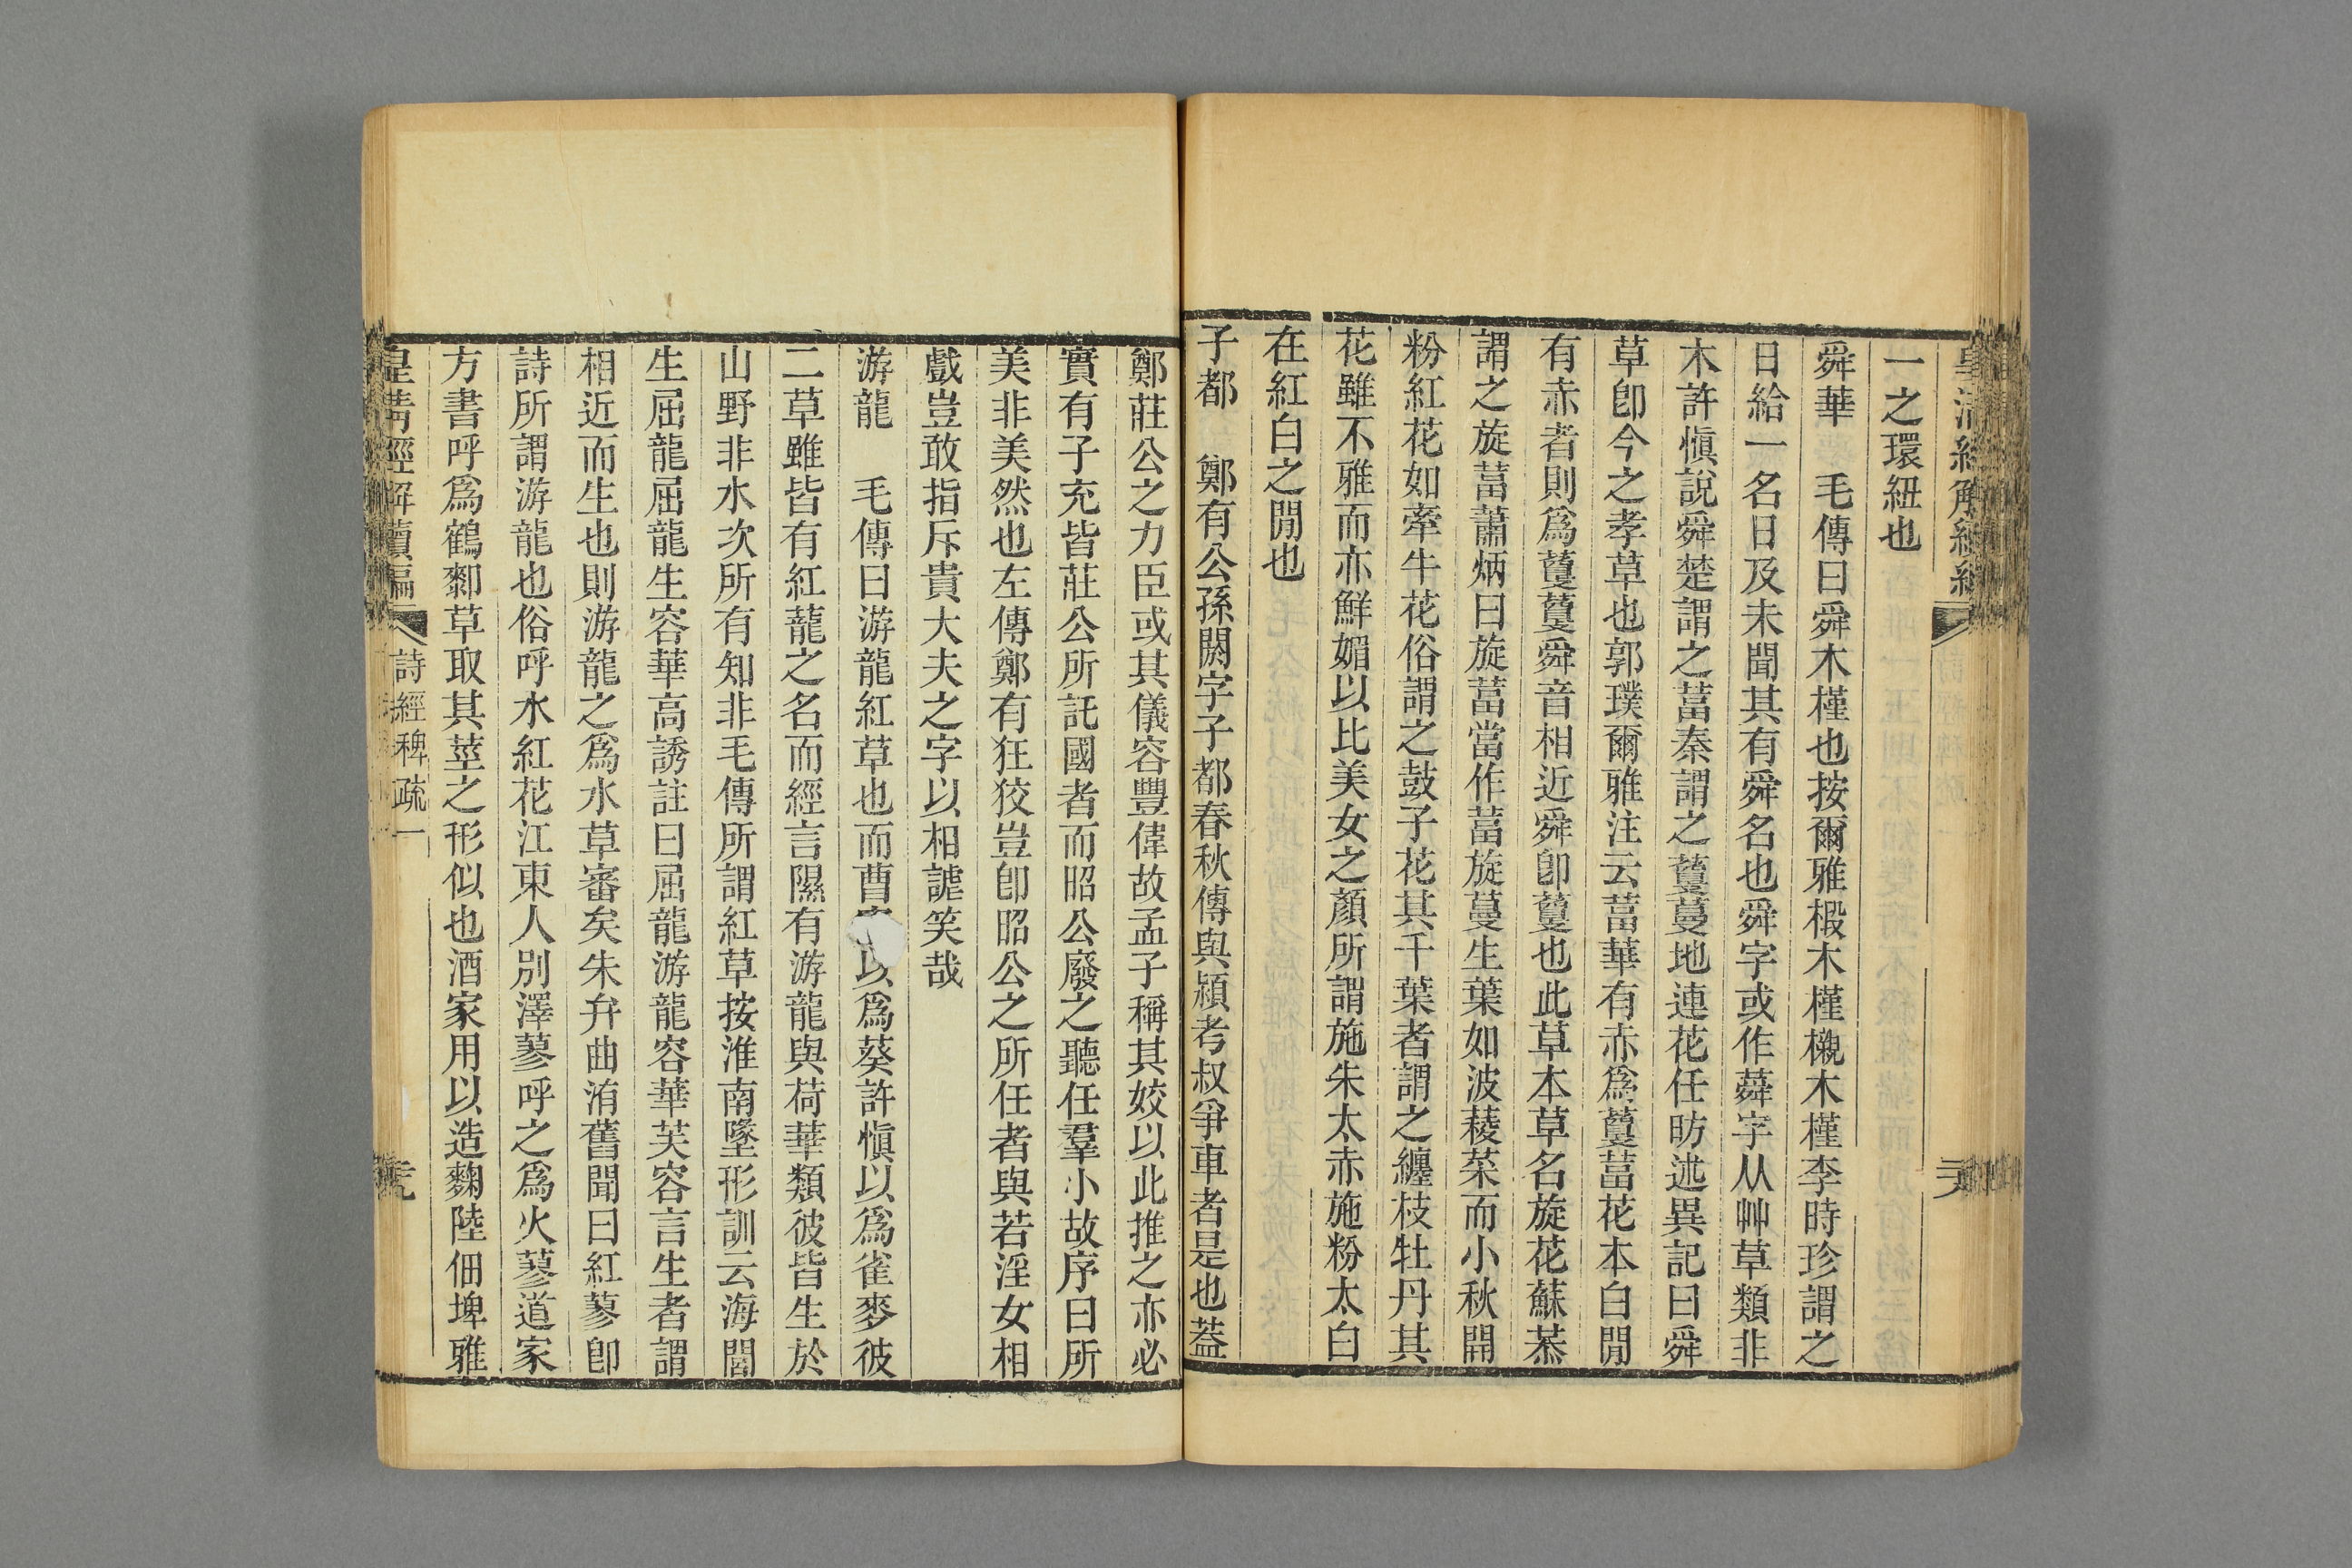 一之環紐也
舜華　毛傳曰舜木槿也按爾雅椴木槿櫬木槿李時珍謂之
日給一名日及未聞其有舜名也舜字或作蕣字从艸草類非
木許愼說舜楚謂之葍秦謂之藑蔓地連花任昉述異記曰舜
草卽今之孝草也郭璞爾雅注云葍華有赤爲藑葍花本白閒
有赤者則爲藑藑舜音相近舜卽藑也此草本草名旋花蘇恭
謂之旋葍蕭炳曰旋葍當作葍旋蔓生葉如波薐菜而小秋開
粉紅花如牽牛花俗謂之鼓子花其千葉者謂之纏枝牡丹其
花雖不雅而亦鮮媚以比美女之顏所謂施朱太赤施粉太白
在紅白之閒也
子都　鄭有公孫閼字子都春秋傳與潁考叔爭車者是也蓋
鄭莊公之力臣或其儀容豐偉故孟子稱其姣以此推之亦必
實有子充皆莊公所託國者而昭公廢之聽任羣小故序曰所
美非美然也左傳鄭有狂狡豈卽昭公之所任者與若淫女相
戲豈敢指斥貴大夫之字以相謔笑哉
游龍　毛傳曰游龍紅草也而曹以爲葵許愼以爲雀麥彼
二草雖皆有紅龍之名而經言隰有游龍與荷華類彼皆生於
山野非水次所有知非毛傳所謂紅草按淮南墬形訓云海閭
生屈龍屈龍生容華高誘註曰屈龍游龍容華芙容言生者謂
相近而生也則游龍之爲水草審矣朱弁曲洧舊聞曰紅蓼卽
詩所謂游龍也俗呼水紅花江東人別澤蓼呼之爲火蓼道家
方書呼爲鶴䣛草取其莖之形似也酒家用以造麴陸佃埤雅
皇淸經解續編　詩經稗疏一